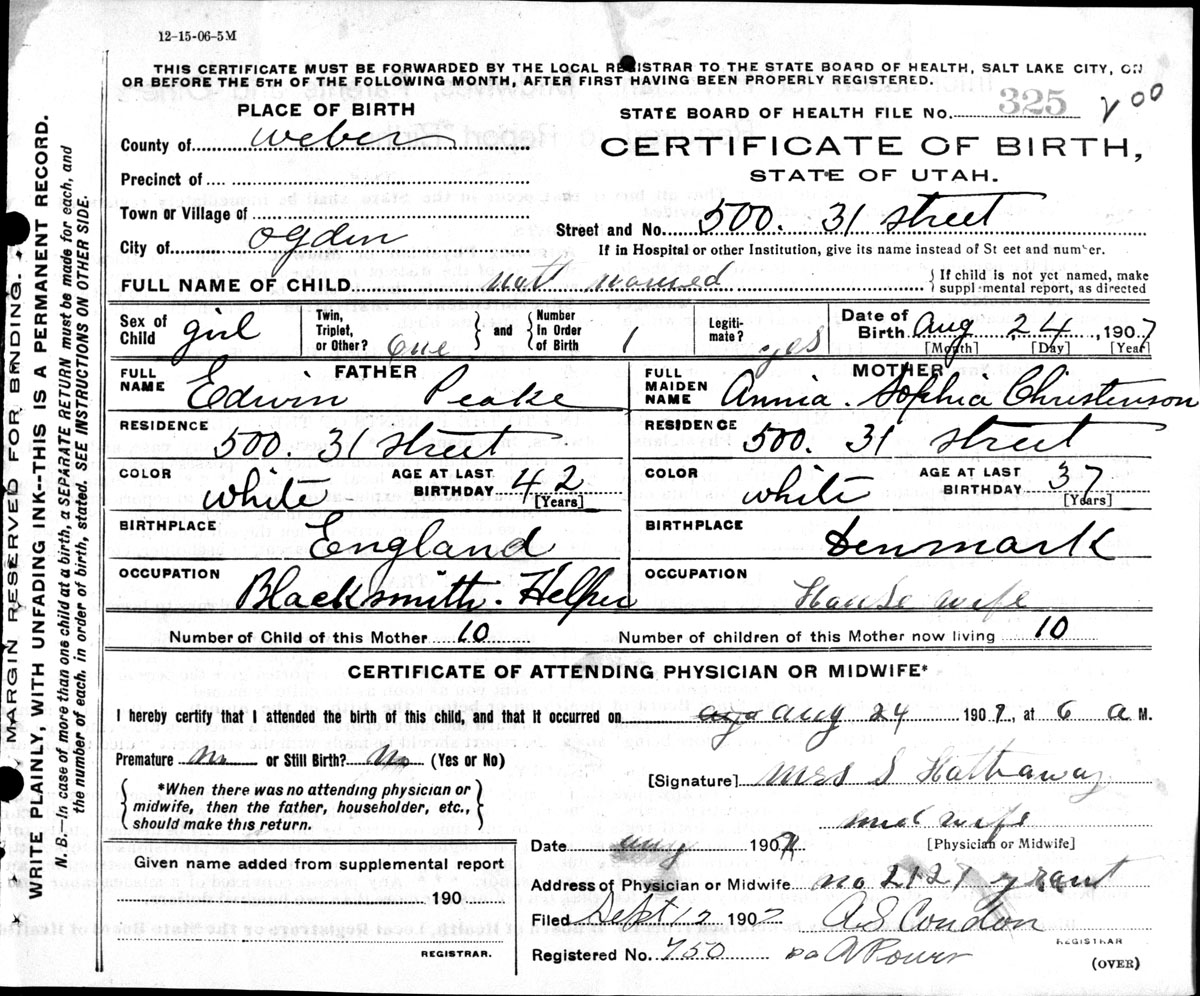 12-15-06-5M
THIS CERTIFICATE MUST BE FORWARDED BY THE LOCAL REGISTRAR TO THE STATE BOARD OF HEALTH, SALT LAKE CITY, ON
OR BEFORE THE 5TH OF THE FOLLOWING MONTH, AFTER FIRST HAVING BEEN PROPERLY REGISTERED.
PLACE OF BIRTH
STATE BOARD OF HEALTH FILE NO. 325
County of Weber
CERTIFICATE OF BIRTH,
Precinct of
STATE OF UTAH.
Town or Village of
Street and No. 500. 31 street
City of Ogden
If in Hospital or other Institution, give its name instead of St eet and number.
FULL NAME OF CHILD not named {If child is not yet named, make supplemental report, as directed
Sex of Child girl Twin, Triplet, or Other? one } and { Number In Order of Birth 1 Legitimate? yes Date of Birth Aug 24, 1907
[Month] [Day] [Year]
FATHER
FULL NAME Edwin Peake
MOTHER
FULL MAIDEN NAME Annia. Sophia Christenson
RESIDENCE 500. 31 street
RESIDENCE 500. 31 street
COLOR white AGE AT LAST BIRTHDAY 42 [Years]
COLOR white AGE AT LAST BIRTHDAY 37 [Years]
BIRTHPLACE England
BIRTHPLACE Denmark
OCCUPATION Blacksmith. Helper
OCCUPATION House wife
Number of Child of this Mother 10 Number of children of this Mother now living 10
CERTIFICATE OF ATTENDING PHYSICIAN OR MIDWIFE*
I hereby certify that I attended the birth of this child, and that it occurred on Aug 24 1907, at 6 a M.
Premature No or Still Birth? No (Yes or No)
*When there was no attending physician or
midwife, then the father, householder, etc.,
should make this return.
[Signature] Mrs S Hathaway
mid wife
[Physician or Midwife]
Given name added from supplemental report
190
REGISTRAR.
Date Aug 1907
Address of Physician or Midwife no 2127 grant
Filed Sept 12 1907 A S Condon
REGISTRAR
Registered No. 750
(OVER)
MARGIN RESERVED FOR BINDING.
WRITE PLAINLY, WITH UNFADING INK--THIS IS A PERMANENT RECORD.
N. B.—In case of more than one child at a birth, a SEPARATE RETURN must be made for each, and
the number of each, in order of birth, stated. SEE INSTRUCTIONS ON OTHER SIDE.